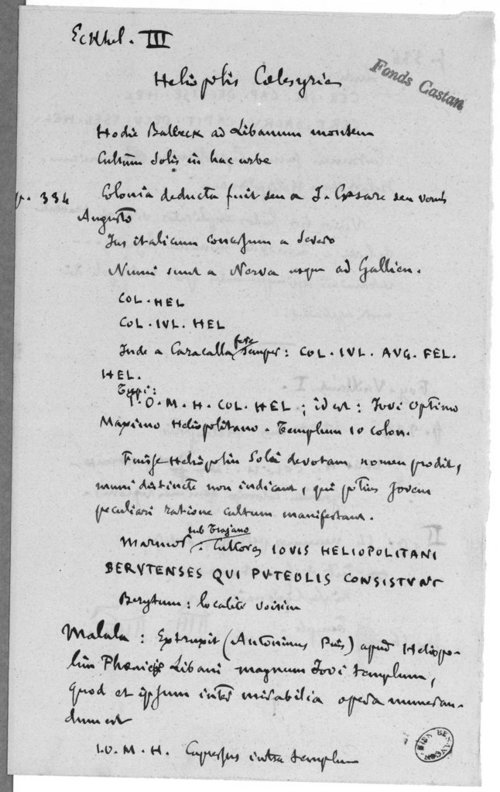 Eckhel. III
Fonds Castan
Heliopolis Cœlesyriæ
Hodie Balbeck ad Libanum montem
Cultum Solis in hac urbe
p. 334 Colonia deducta fuit seu a J. Cæsare seu
Augusto
Jus italicum concessum a Severo
Numi sunt a Nerva usque ad Gallien.
COL. HEL
COL. IVL. HEL
Inde a Caracalla fere semper : COL. IVL. AVG. FEL.
HEL.
Typi :
I. O. M. H. COL. HEL. ; id est : Jovi Optimo
Maximo Heliopolitano. Templum 10 colon.
Fuisse Heliopolin Soli devotam nomen prodit,
numi distincte non indicant, qui potius Jovem
peculiari ratione cultum manifestant.
Marmor sub Trajano. Cultores IOVIS HELIOPOLITANI
BERYTENSES QUI PUTEOLIS CONSISTUNT
Berytum : localité voisine
Malala : Extruxit (Antoninus Pius) apud Heliopo-
lim Phœnices Libani magnum Jovi templum,
quod et ipsum inter mirabilia opera numeran-
dum est
I. O. M. H. Cupressus intra templum